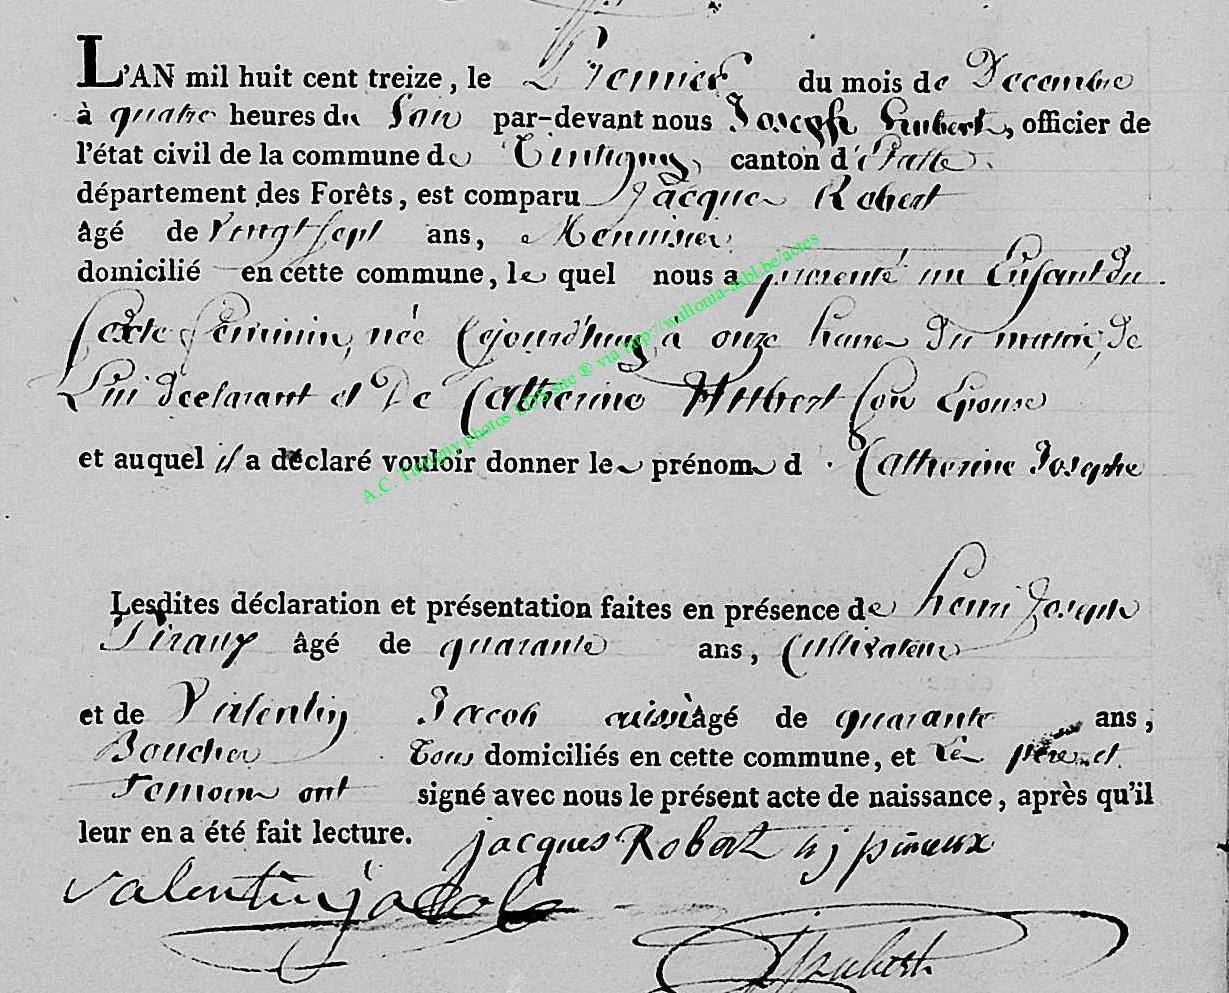 L'AN mil huit cent treize, le Premier du mois de Decembre
à quatre heures du Soir par-devant nous Joseph hubert, officier de
l'état civil de la commune de Tintigny, canton d'étalle
département des Forêts, est comparu Jacques Robert
âgé de vingt sept ans, Menuisier
domicilié en cette commune, le quel nous a presenté un Enfant du
sexte feminin, née Cejourd'huy à onze heures du matin, de
Lui declarant et De Catherine Hubert son Epouse
et auquel il a déclaré vouloir donner le prénom d Catherine Josephe
Lesdites déclaration et présentation faites en présence de henri Joseph
Piraux âgé de quarante ans, Cultivateur
et de Valentin Jacob aussi âgé de quarante ans,
Boucher Tous domiciliés en cette commune, et Les père et
Temoins ont signé avec nous le présent acte de naissance, après qu'il
leur en a été fait lecture. jacques Robert hj piraux
valentin jacob
J hubert
A.C. Tintigny photos LDS site ® via http://wallonia-asbl.be/actes